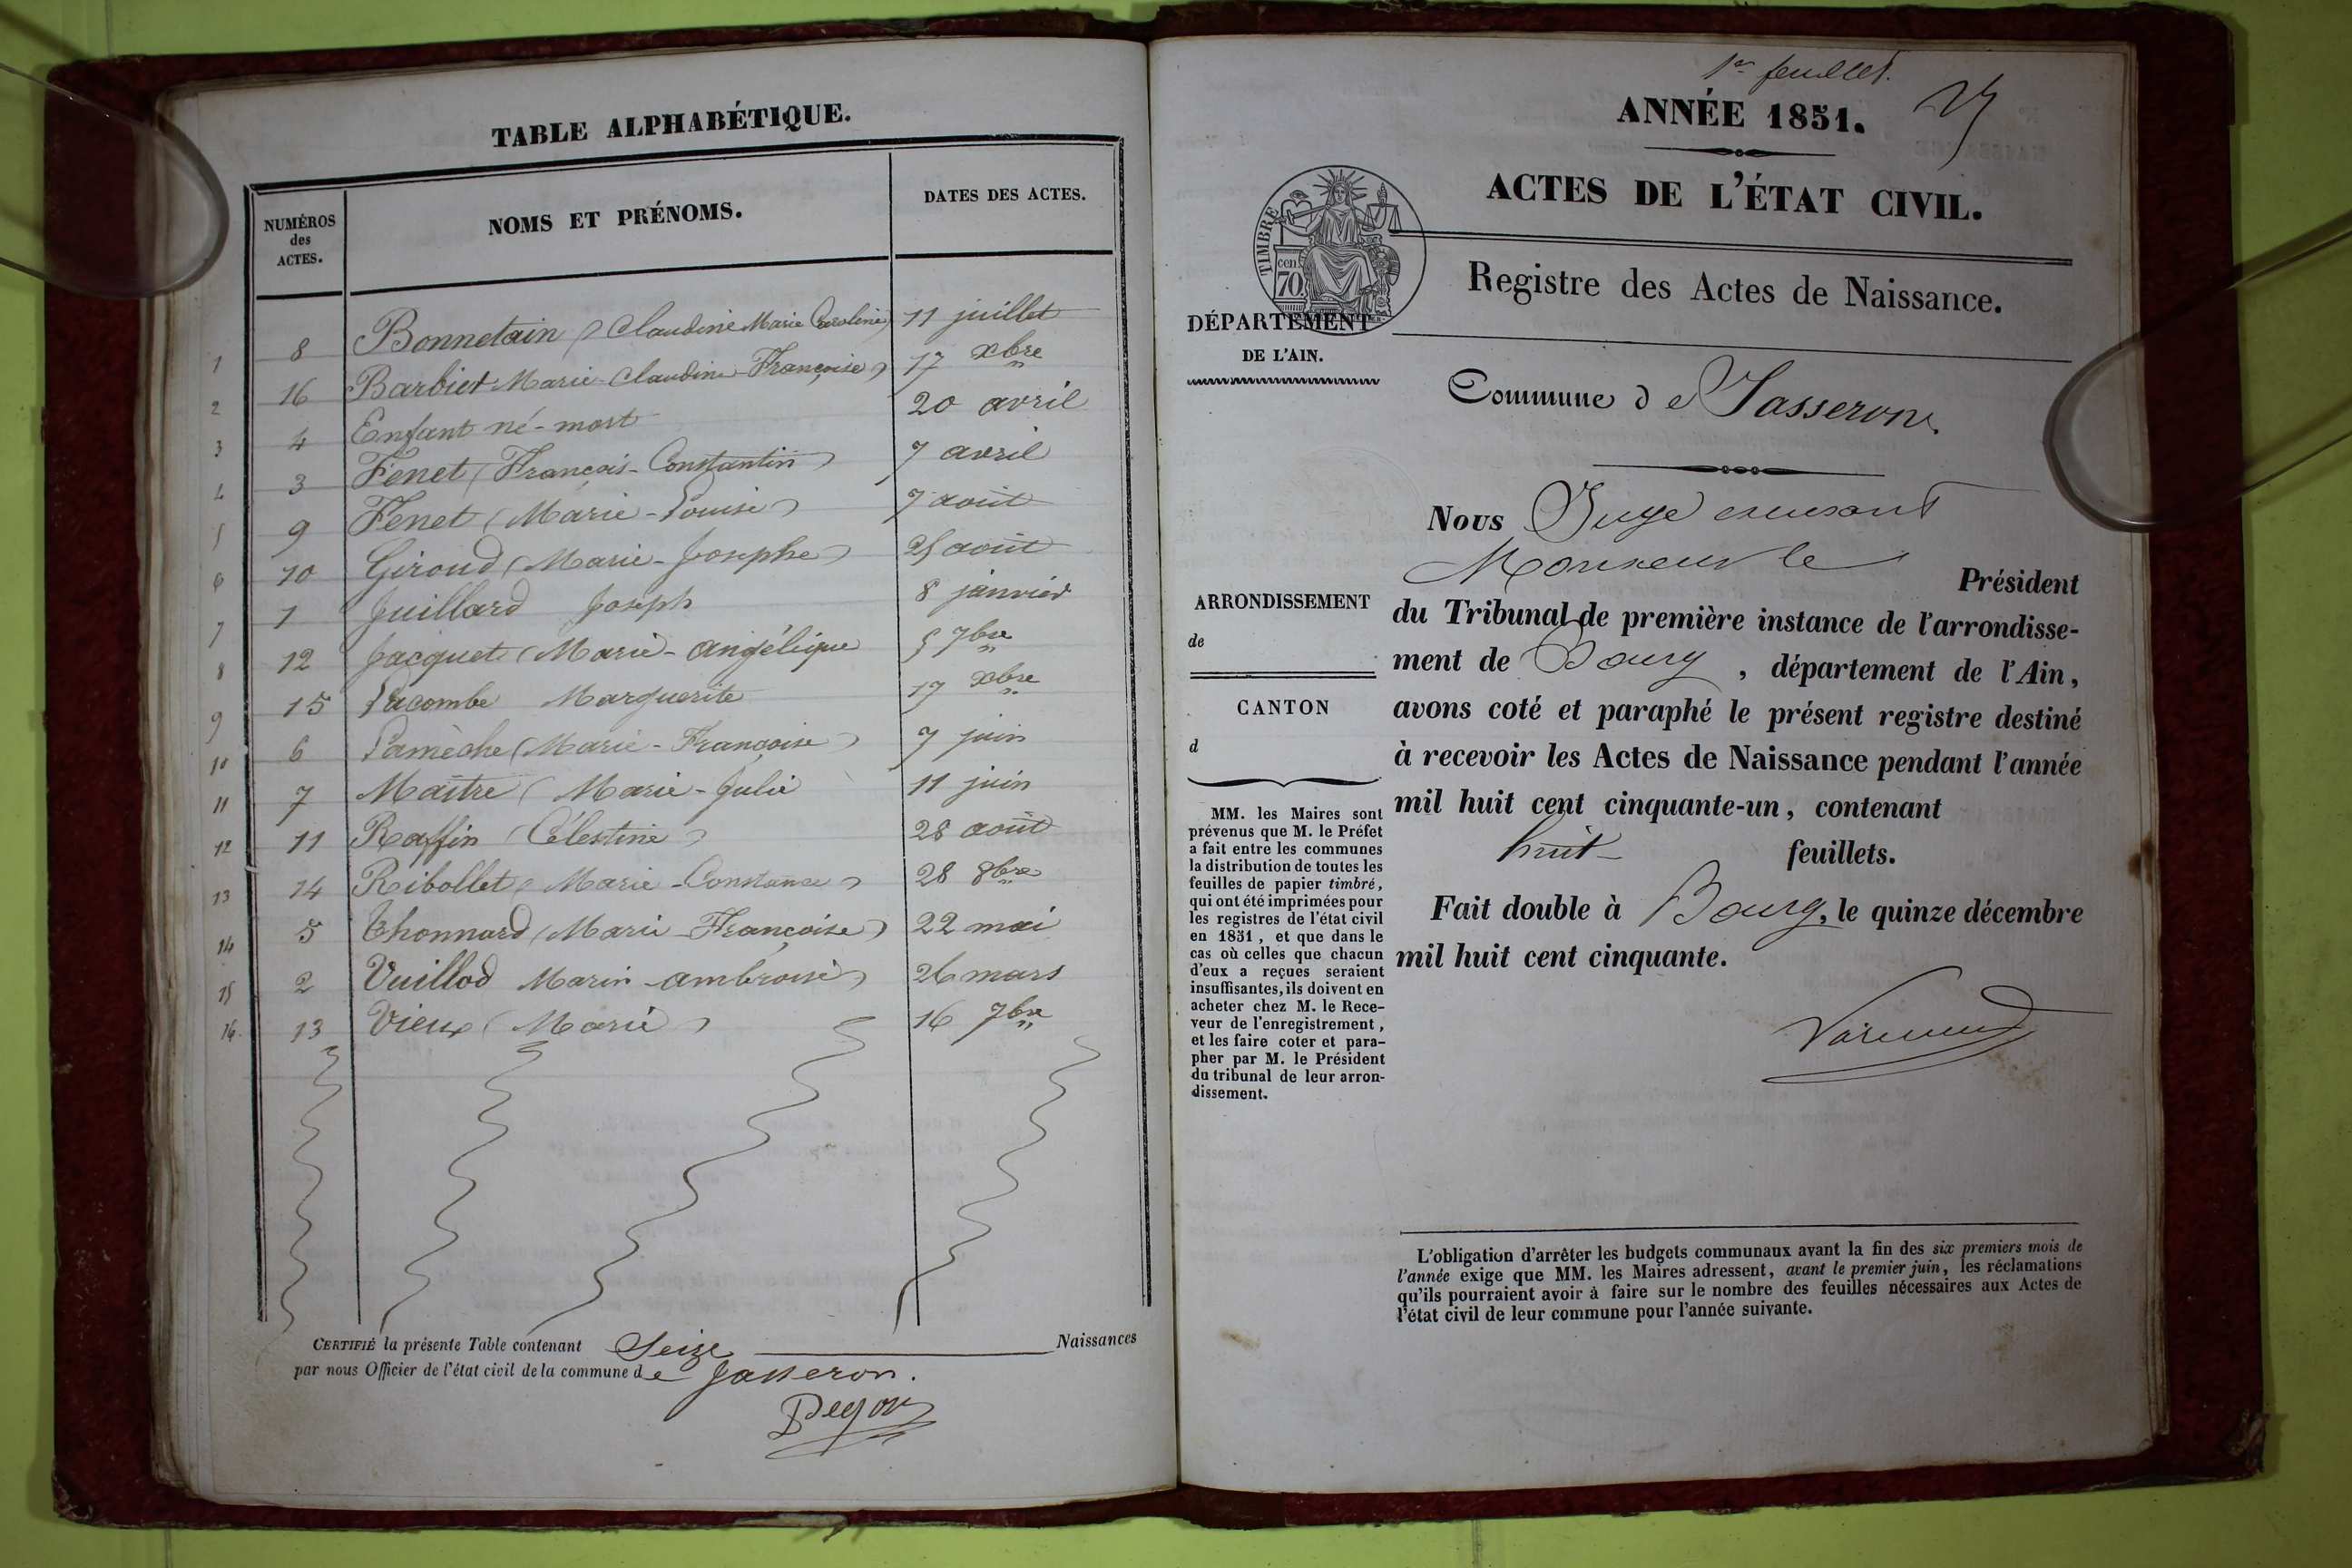 TABLE ALPHABÉTIQUE.
NUMÉROS des ACTES. NOMS ET PRÉNOMS. DATES DES ACTES.
1 8 Bonnetain (Claudine Marie Caroline) 11 juillet
2 16 Barbiet Marie-Claudine-Françoise) 17 xbre
3 4 Enfant né-mort 20 avril
4 3 Fenet (François-Constantin) 7 avril
5 9 Fenet (Marie-Louise) 7 août
6 10 Giroud (Marie-Josephe) 25 août
7 1 Juillard Joseph 8 janvier
8 12 Jacquet (Marie-Angélique 5 7bre
9 15 Lacombe Marguerite 17 xbre
10 6 Lamèche (Marie-Françoise) 7 juin
11 7 Maitre (Marie-Julie 11 juin
12 11 Raffin (Célestine) 28 août
13 14 Ribollet (Marie-Constance) 28 8bre
14 5 Thonnard (Marie-Françoise) 22 mai
15 2 Vuillod Marin-ambroise) 26 mars
16 13 Vieux (Marie) 16 7bre
CERTIFIÉ la présente Table contenant Seize Naissances
par nous Officier de l'état civil de la commune de Jasseron.
1er feuillet.
ANNÉE 1851.
ACTES DE L'ÉTAT CIVIL.
Registre des Actes de Naissance.
TIMBRE
cen.
70
DÉPARTEMENT
DE L'AIN.
Commune de Jasseron
Nous Juge
Monsieur le Président
du Tribunal de première instance de l'arrondisse-
ment de Bourg, département de l'Ain,
avons coté et paraphé le présent registre destiné
à recevoir les Actes de Naissance pendant l'année
mil huit cent cinquante-un, contenant
huit feuillets.
Fait double à Bourg, le quinze décembre
mil huit cent cinquante.
ARRONDISSEMENT
de
CANTON
d
MM. les Maires sont
prévenus que M. le Préfet
a fait entre les communes
la distribution de toutes les
feuilles de papier timbré,
qui ont été imprimées pour
les registres de l'état civil
en 1851, et que dans le
cas où celles que chacun
d'eux a reçues seraient
insuffisantes, ils doivent en
acheter chez M. le Rece-
veur de l'enregistrement,
et les faire coter et para-
pher par M. le Président
du tribunal de leur arron-
dissement.
L'obligation d'arrêter les budgets communaux avant la fin des six premiers mois de
l'année exige que MM. les Maires adressent, avant le premier juin, les réclamations
qu'ils pourraient avoir à faire sur le nombre des feuilles nécessaires aux Actes de
l'état civil de leur commune pour l'année suivante.